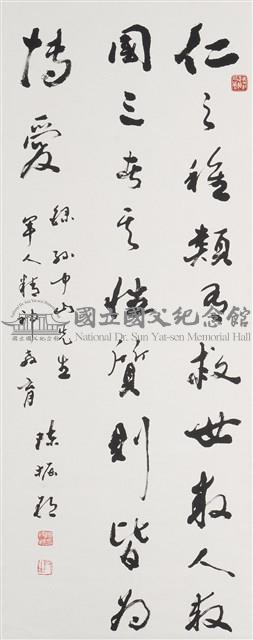 仁之種類有救世救人救
國三者其性質則皆為
博愛
錄孫中山先生
軍人精神教育
國立國父紀念館
National Dr. Sun Yat-sen Memorial Hall